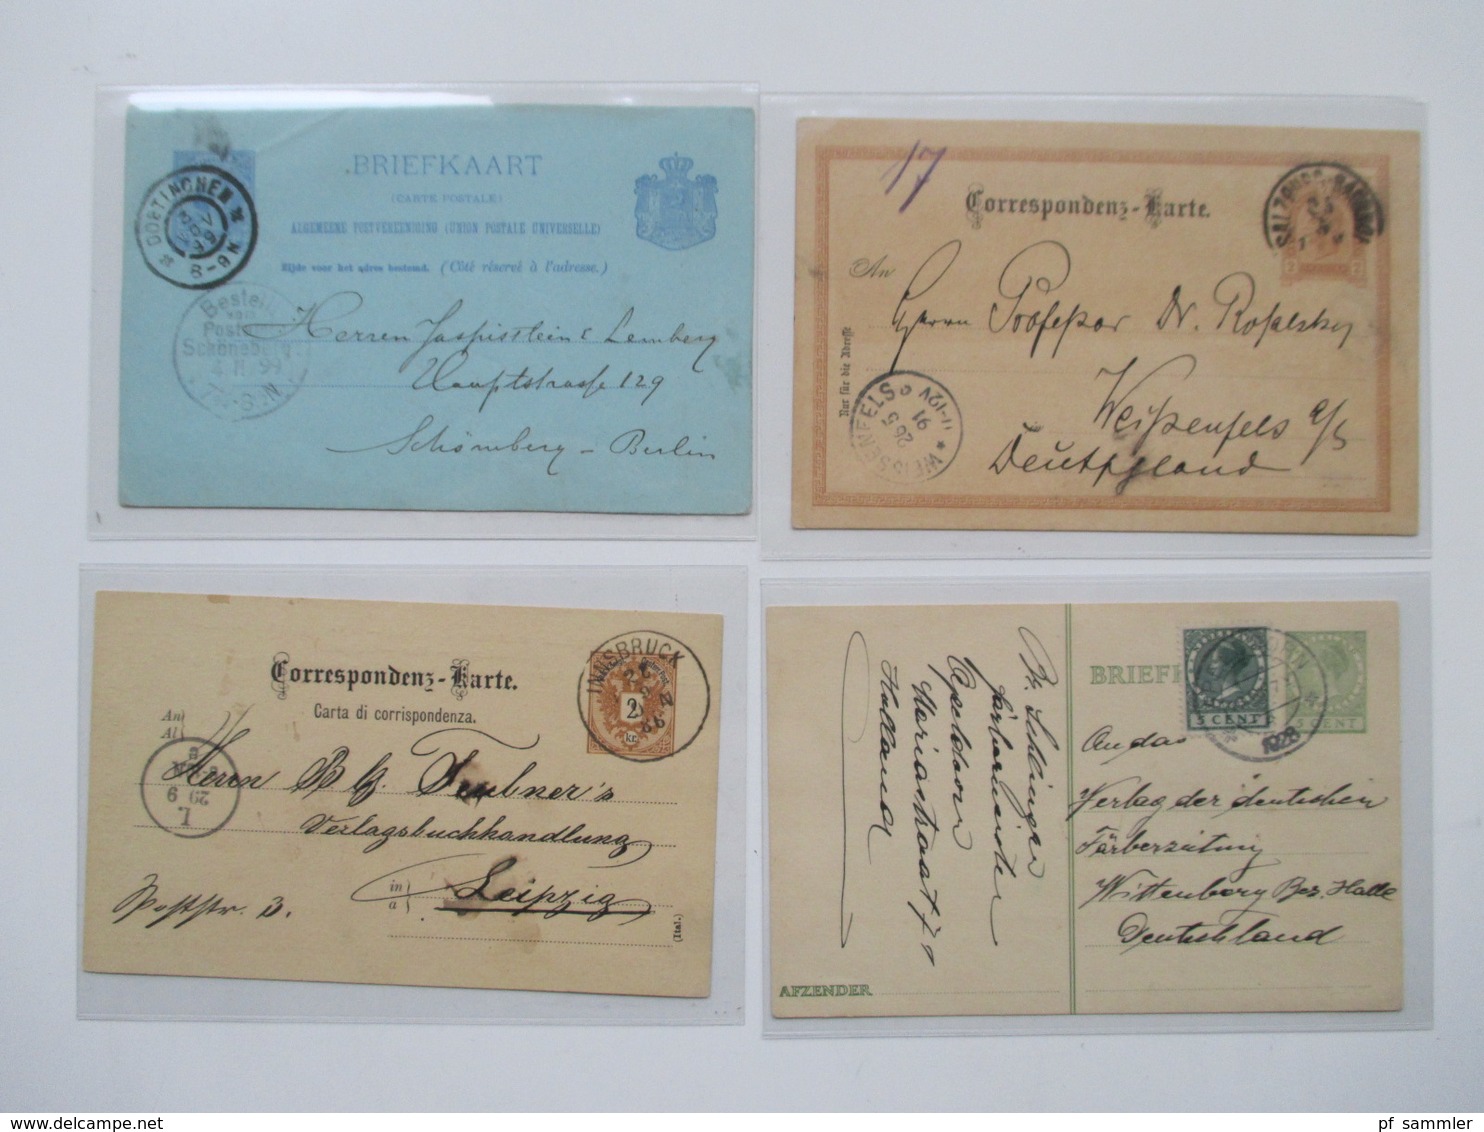 BRIEFKAART
(CARTE POSTALE)
ALGEMEENE POSTVEREENIGING (UNION POSTALE UNIVERSELLE)
Zijde voor het adres bestemd. (Côté réservé à l'adresse.)
DOETINCHEM
8-9N
Bestellt
vom
Postamte
Schöneberg
4.11.99
Herren Jaspisstein & Lemberg
Hauptstrasse 129
Schöneberg - Berlin
17
Correspondenz-Karte.
2 2
An
Herrn Professor Dr. Rosalsky
Weißenfels a/S
Deutschland
Nur für die Adresse
WEISSENFELS
26 5
91
11-12V
Correspondenz-Karte.
Carta di corrispondenza.
INNSBRUCK
86
2
kr.
An
Al
Herrn B. G. Teubner's
Verlagsbuchhandlung
in
a
Leipzig
Poststr. 3.
(Ital.)
L.
29 9
BRIEFK
5 CENT
5 CENT
1928
An das
Verlag der deutschen
Färberzeitung
Wittenberg Bez. Halle
Deutschland
Färbermeister
Apeldoorn
Mariastraat 71
Holland
AFZENDER
pf_sammler